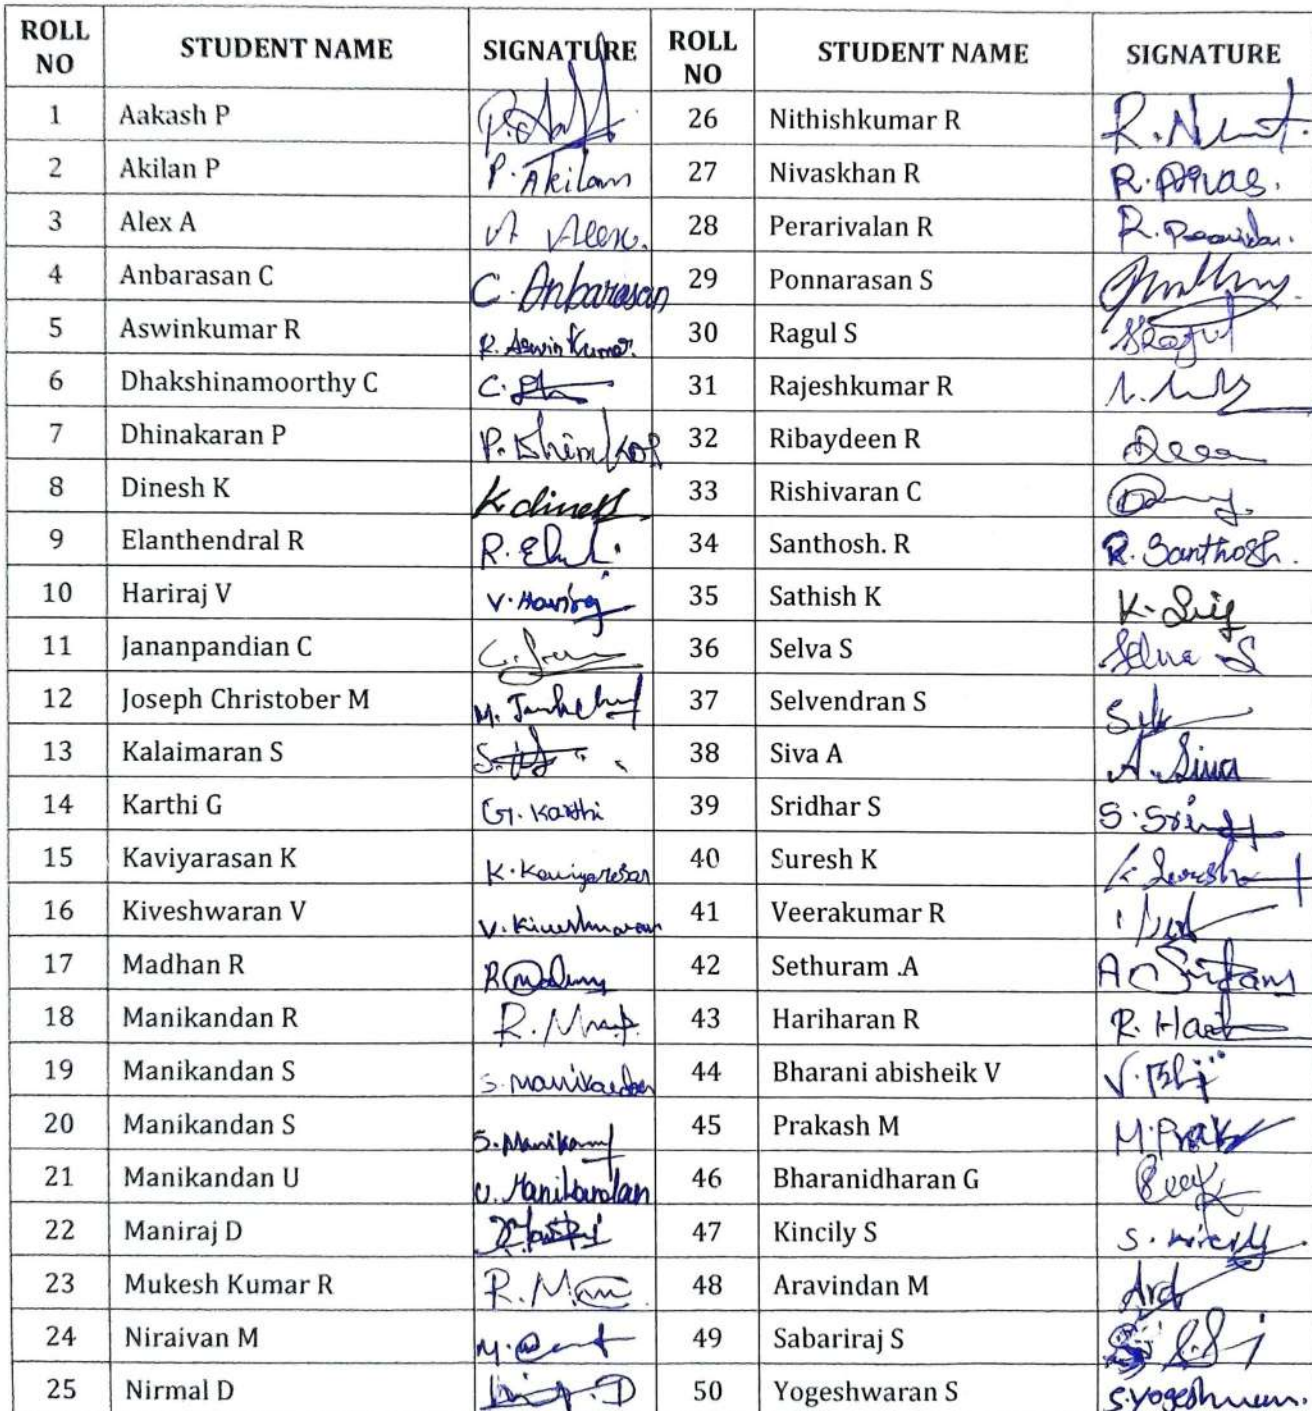 ROLL NO STUDENT NAME SIGNATURE ROLL NO STUDENT NAME SIGNATURE
1 Aakash P 26 Nithishkumar R
2 Akilan P P. Akilan 27 Nivaskhan R
3 Alex A A Alex. 28 Perarivalan R
4 Anbarasan C C. Anbarasan 29 Ponnarasan S
5 Aswinkumar R R. Aswin Kumar. 30 Ragul S SRagul
6 Dhakshinamoorthy C 31 Rajeshkumar R
7 Dhinakaran P 32 Ribaydeen R
8 Dinesh K K dinesh 33 Rishivaran C
9 Elanthendral R 34 Santhosh. R R. Santhosh.
10 Hariraj V V. Hariraj 35 Sathish K
11 Jananpandian C 36 Selva S Selva S
12 Joseph Christober M 37 Selvendran S
13 Kalaimaran S 38 Siva A A. Siva
14 Karthi G G. Karthi 39 Sridhar S
15 Kaviyarasan K K. Kaviyarasan 40 Suresh K K. Suresh
16 Kiveshwaran V V. Kiveshwaran 41 Veerakumar R
17 Madhan R 42 Sethuram .A
18 Manikandan R 43 Hariharan R R. Hari
19 Manikandan S S. Manikandan 44 Bharani abisheik V
20 Manikandan S 45 Prakash M
21 Manikandan U U. Manikandan 46 Bharanidharan G
22 Maniraj D 47 Kincily S S. Kincily
23 Mukesh Kumar R 48 Aravindan M
24 Niraivan M 49 Sabariraj S
25 Nirmal D 50 Yogeshwaran S S.Yogeshwaran.